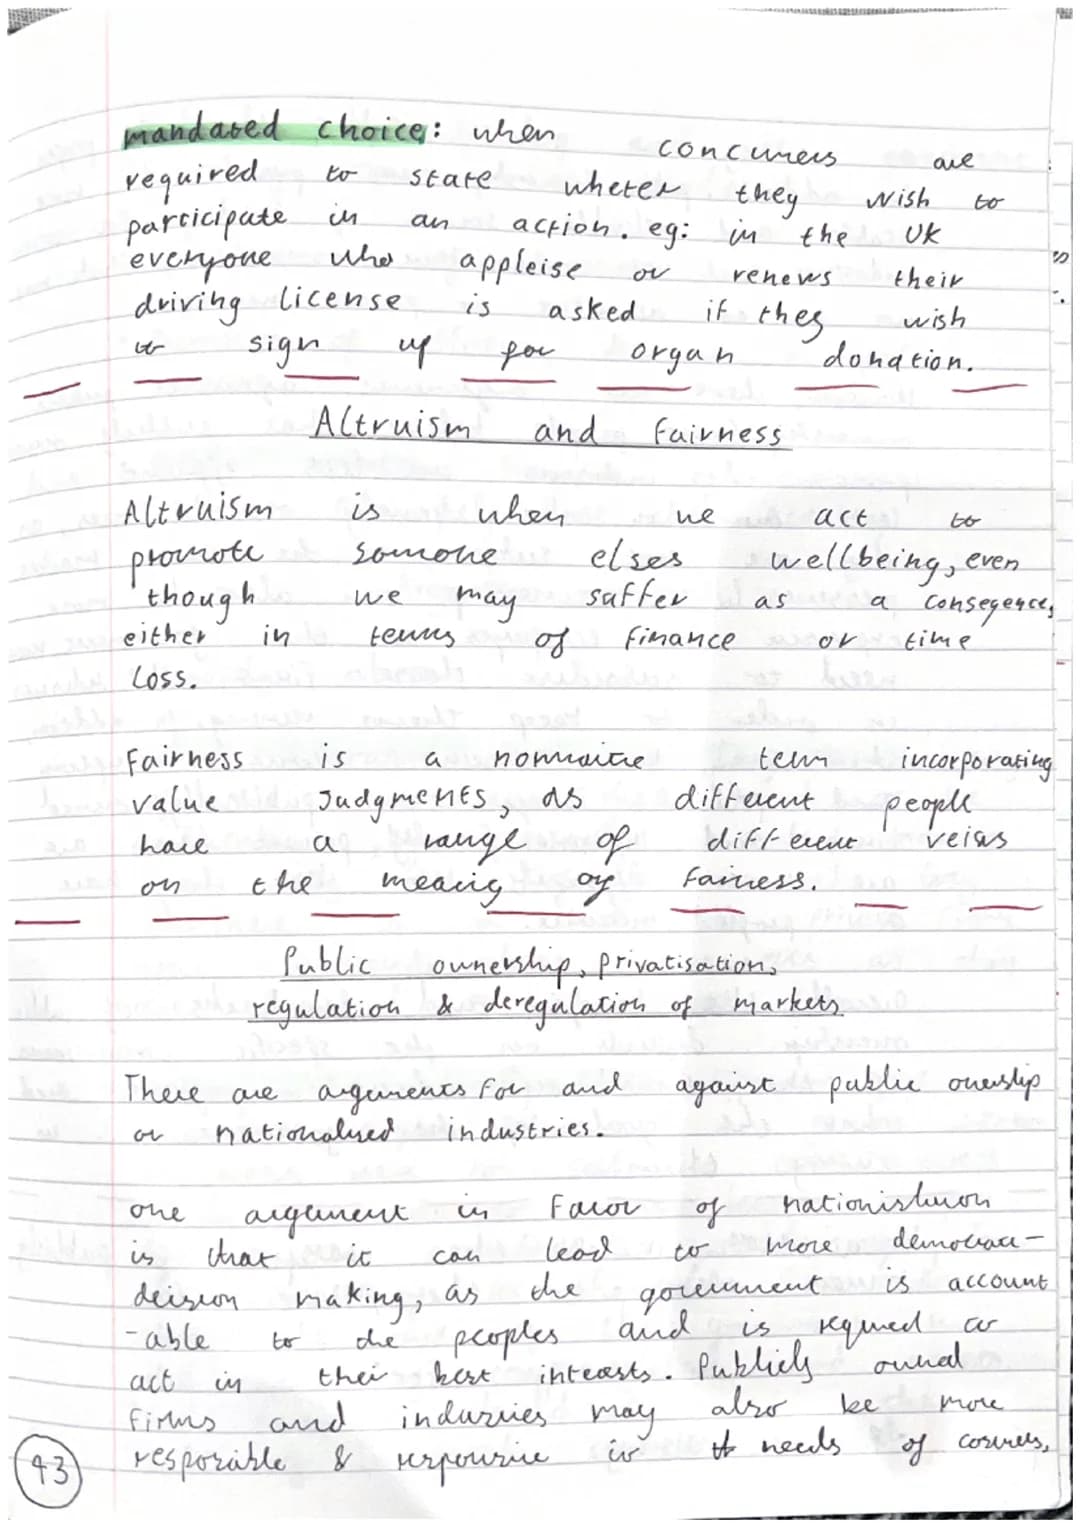 mandated choice: when concumers are
required to state wheter they wish to
participate in an action. eg: in the UK
everyone who appleise or renews their
driving license is asked if they wish
to sign up for organ donation.
Altruism and fairness
Altruism is when we act to
promote somone elses wellbeing, even
though we may suffer as a conseqence,
either in terms of finance or time
loss.
Fairness is a normaitre term incorporating
value Judgments, as different people
have a range of different veiws
on the meaing of fairness.
Public ownership, privatisation,
regulation & deregulation of markets
There are arguments for and against public ownership
or nationalised industries.
one argument in favor of
is that it can lead to more democratic
decision making, as the government is account
-able to the peoples and is required to
act in their best interests. Publicly owned
firms and industries may also be more
responsible & responsive to the needs of
93